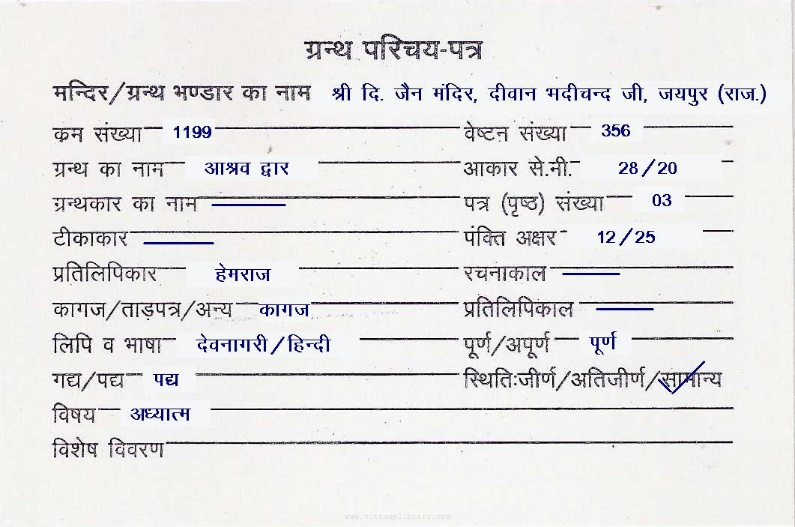 ग्रन्थ परिचय-पत्र
मन्दिर/ग्रन्थ भण्डार का नाम श्री दि. जैन मंदिर, दीवान भदीचन्द जी, जयपुर (राज.)
क्रम संख्या 1199 वेष्टन संख्या 356
ग्रन्थ का नाम आश्रव द्वार आकार से.मी. 28/20
ग्रन्थकार का नाम पत्र (पृष्ठ) संख्या 03
टीकाकार पंक्ति अक्षर 12/25
प्रतिलिपिकार हेमराज रचनाकाल
कागज/ताड़पत्र/अन्य कागज प्रतिलिपिकाल
लिपि व भाषा देवनागरी/हिन्दी पूर्ण/अपूर्ण पूर्ण
गद्य/पद्य पद्य स्थितिःजीर्ण/अतिजीर्ण/सामान्य
विषय अध्यात्म
विशेष विवरण